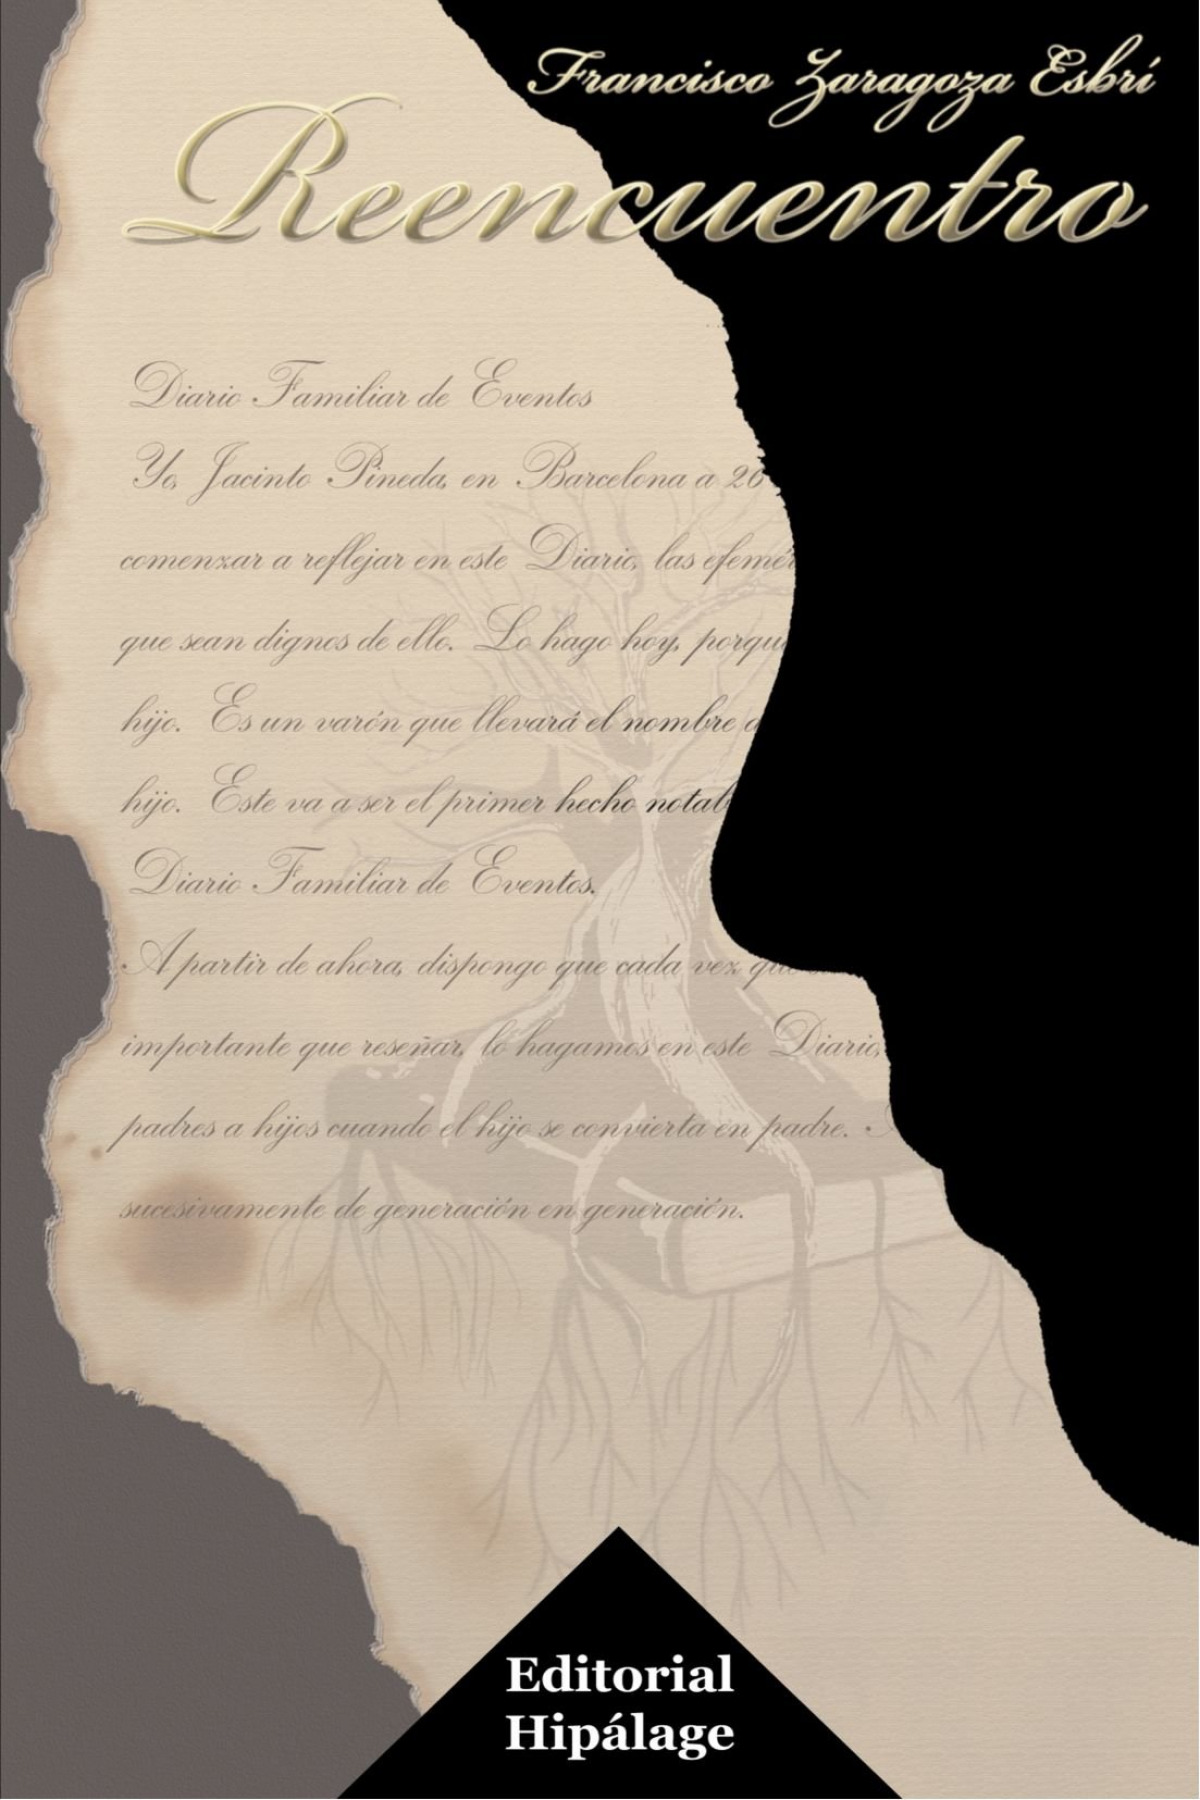 Francisco Zaragoza Esbrí
Reencuentro
Diario Familiar de Eventos
Yo, Jacinto Pineda, en Barcelona a 26
comenzar a reflejar en este Diario, las efemér
que sean dignos de ello. Lo hago hoy, porqu
hijo. Es un varón que llevará el nombre d
hijo. Este va a ser el primer hecho notab
Diario Familiar de Eventos.
A partir de ahora, dispongo que cada vez qu
importante que reseñar, lo hagamos en este Diario,
padres a hijos cuando el hijo se convierta en padre.
sucesivamente de generación en generación.
Editorial
Hipálage